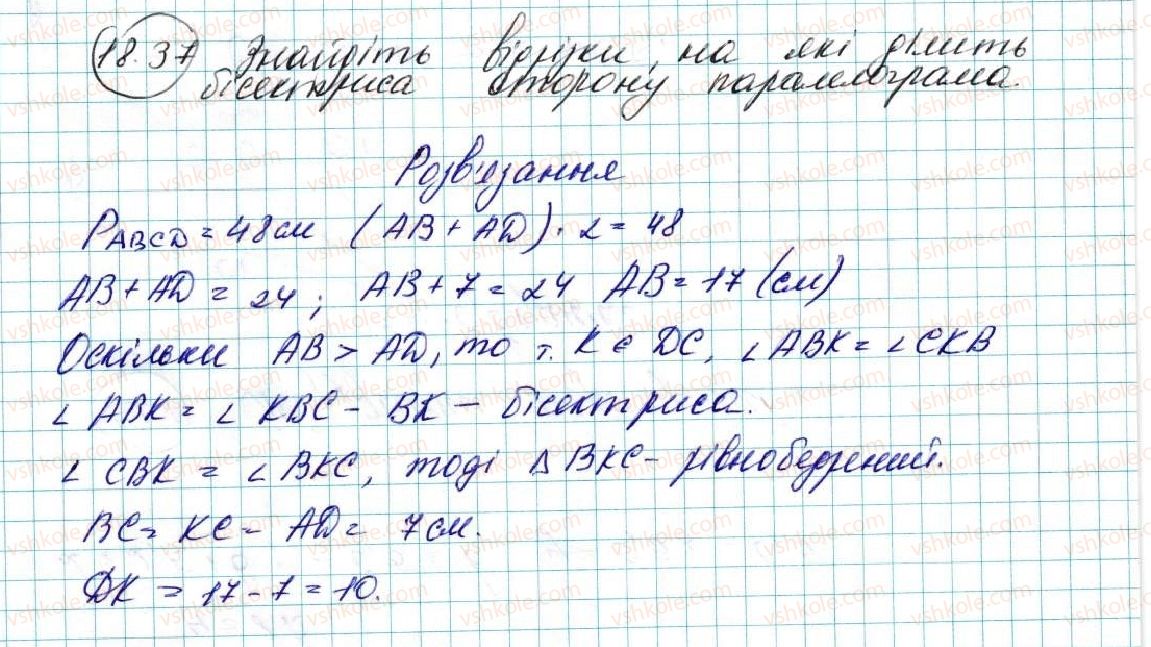 18.37 Знайдіть відрізки, на які ділить
бісектриса сторону паралелограма.
Розв'язання
P ABCD = 48 см (AB + AD) · 2 = 48
AB + AD = 24; AB + 7 = 24 AB = 17 (см)
Оскільки AB > AD, то т. K є DC, ∠ABK = ∠CKB
∠ABK = ∠KBC - BK - бісектриса.
∠CBK = ∠BKC, тоді Δ BKC - рівнобедрений.
BC = KC = AD = 7 см.
DK = 17 - 7 = 10.